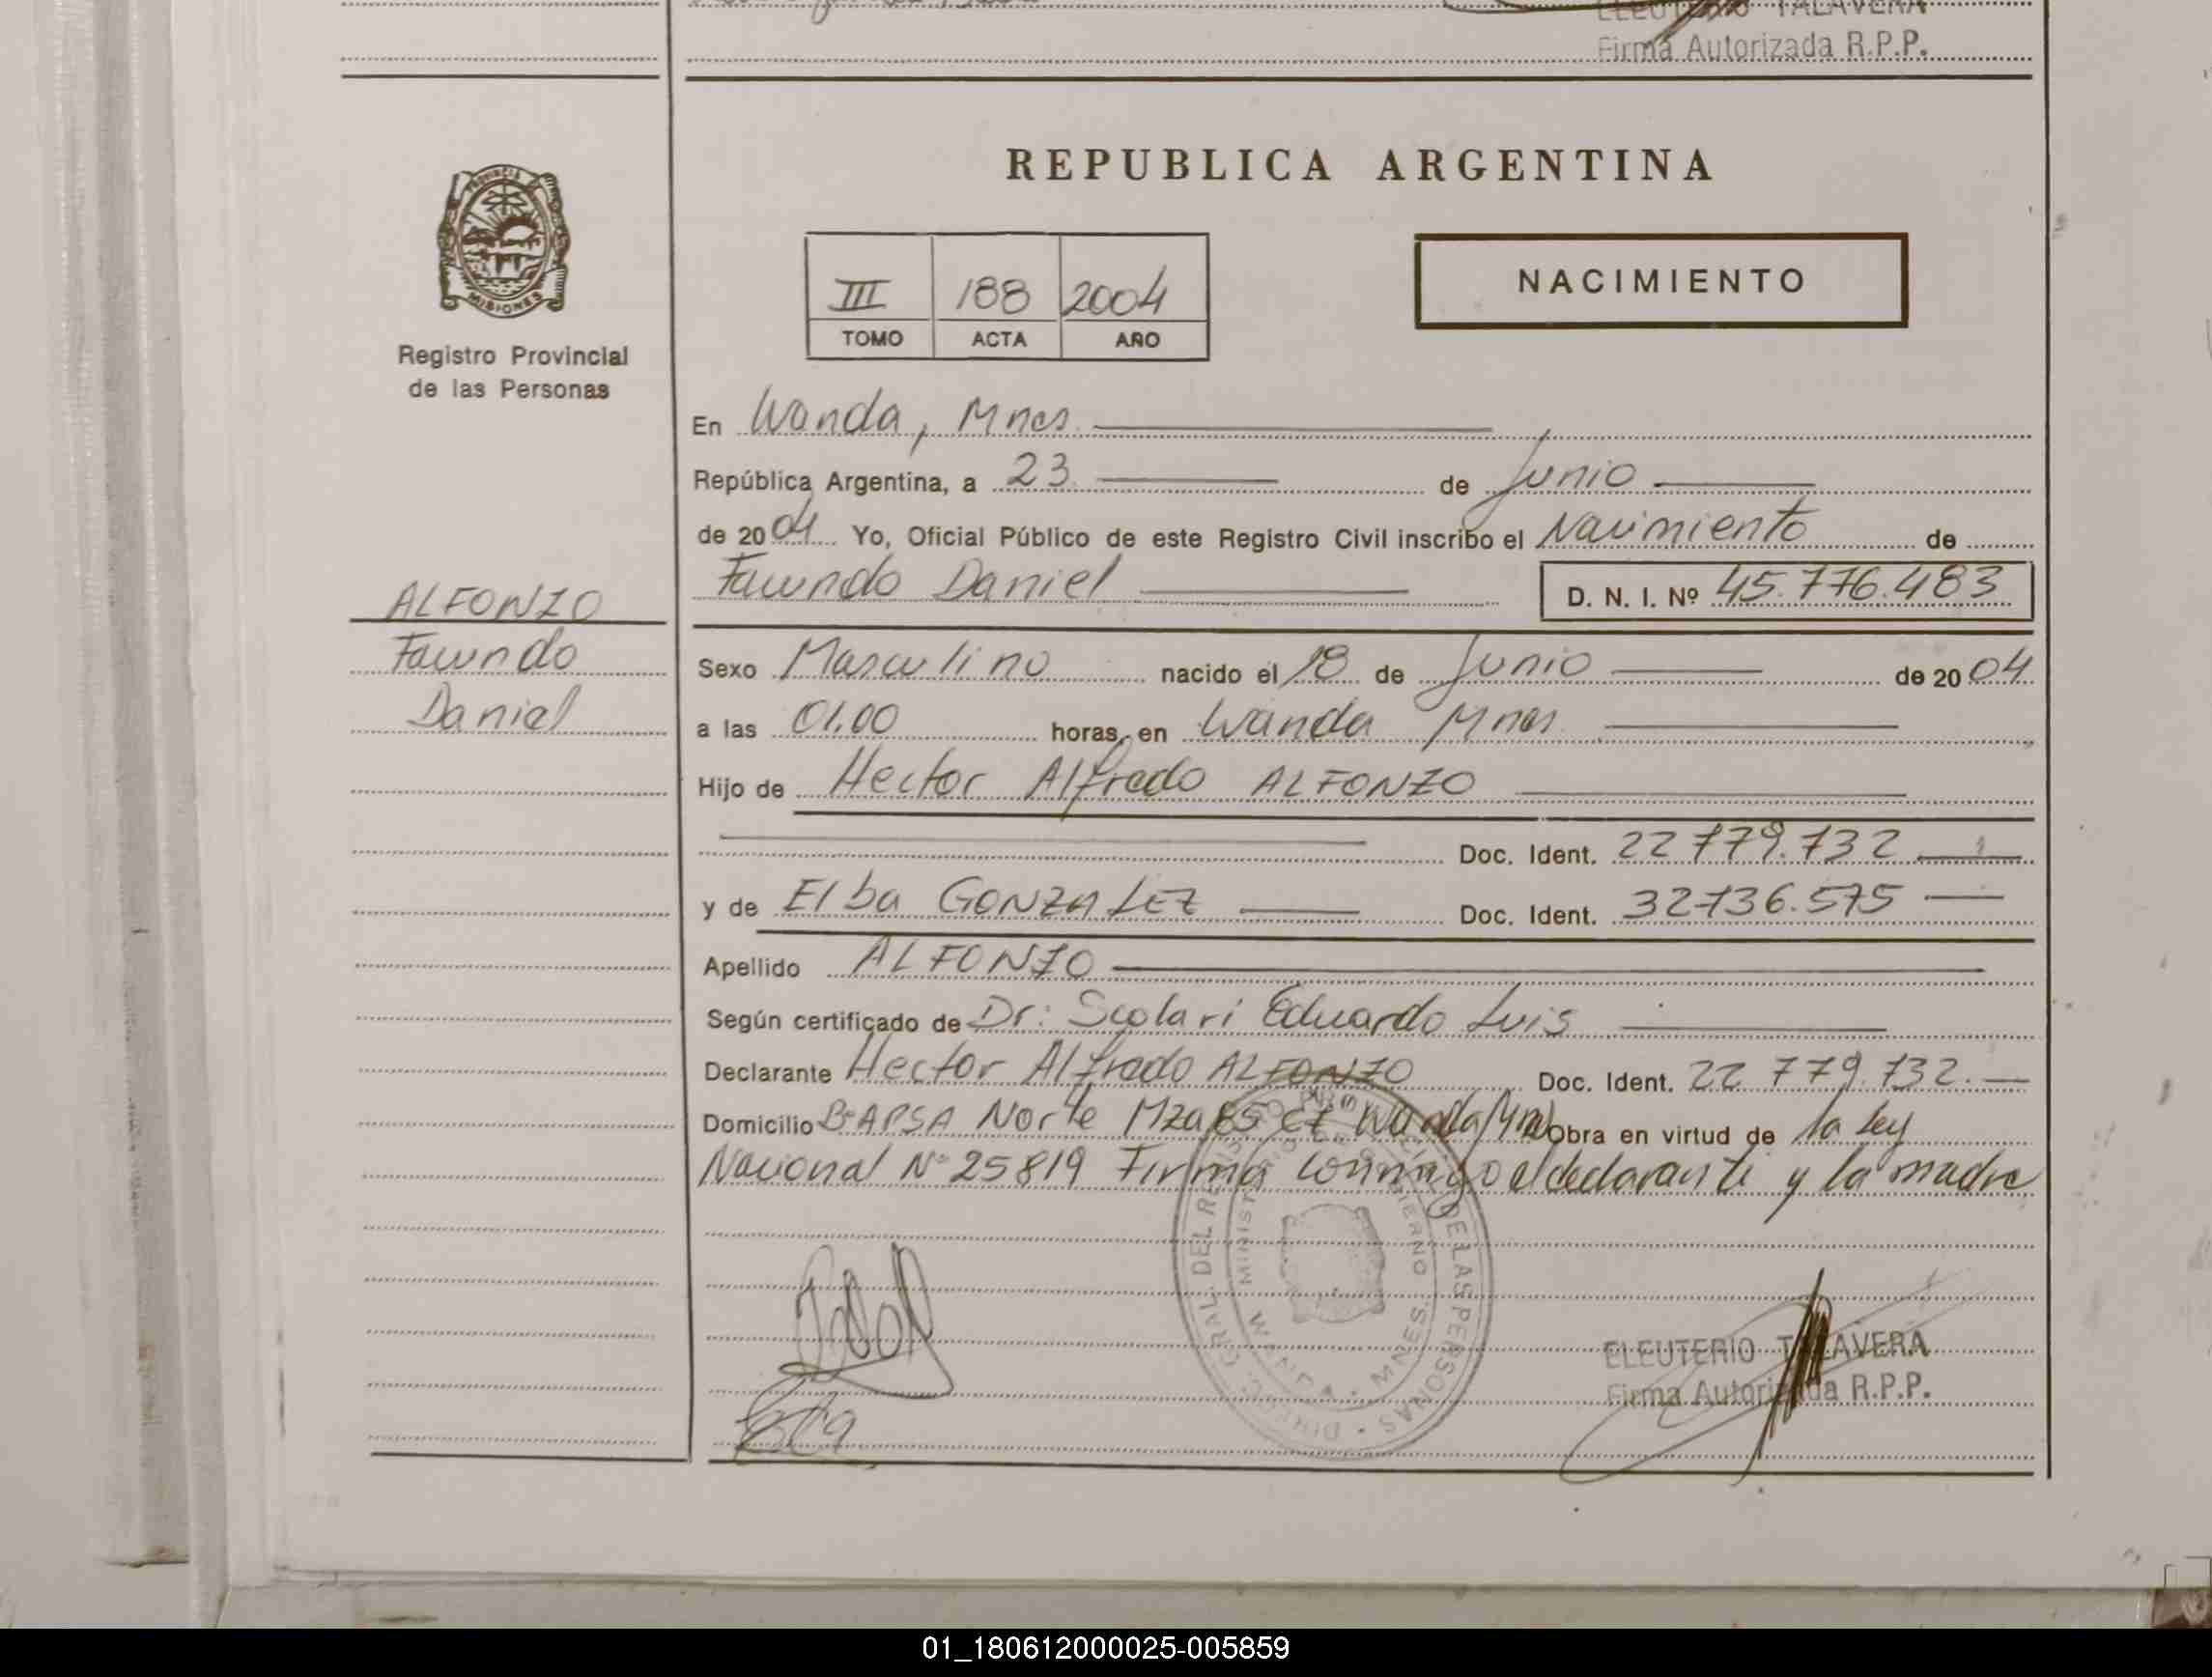 ELEUTERIO TALAVERA
Firma Autorizada R.P.P.
PROVINCIA DE
MISIONES
Registro Provincial
de las Personas
REPUBLICA ARGENTINA
III 188 2004
TOMO ACTA AÑO
NACIMIENTO
En Wanda, Mnes.
República Argentina, a 23 de Junio
de 2004 Yo, Oficial Público de este Registro Civil inscribo el Nacimiento de
Facundo Daniel D. N. I. Nº 45.776.483
ALFONZO
Facundo
Daniel
Sexo Masculino nacido el 18 de Junio de 2004
a las 01.00 horas, en Wanda Mnes
Hijo de Hector Alfredo ALFONZO
Doc. Ident. 22 779.732
y de Elba GONZALEZ Doc. Ident. 32736.575
Apellido ALFONZO
Según certificado de Dr: Scolari Eduardo Luis
Declarante Hector Alfredo ALFONZO Doc. Ident. 22 779.732.
Domicilio Bº APSA Norte Mza Wanda Mnes Obra en virtud de la Ley
Nacional Nº 25819 Firma conmigo el declarante y la madre
DIREC. GRAL. DEL REGISTRO PROV. DE LAS PERSONAS
WANDA - MNES.
ELEUTERIO TALAVERA
Firma Autorizada R.P.P.
01_180612000025-005859